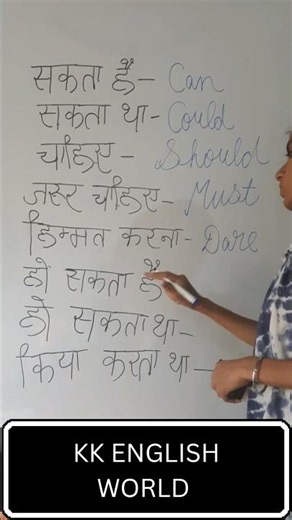 सकता है - Can
सकता था - Could
चाहिए - Should
जरुर चाहिए - Must
हिम्मत करना - Dare
हो सकता है
हो सकता था -
किया करता था -
KK ENGLISH
WORLD